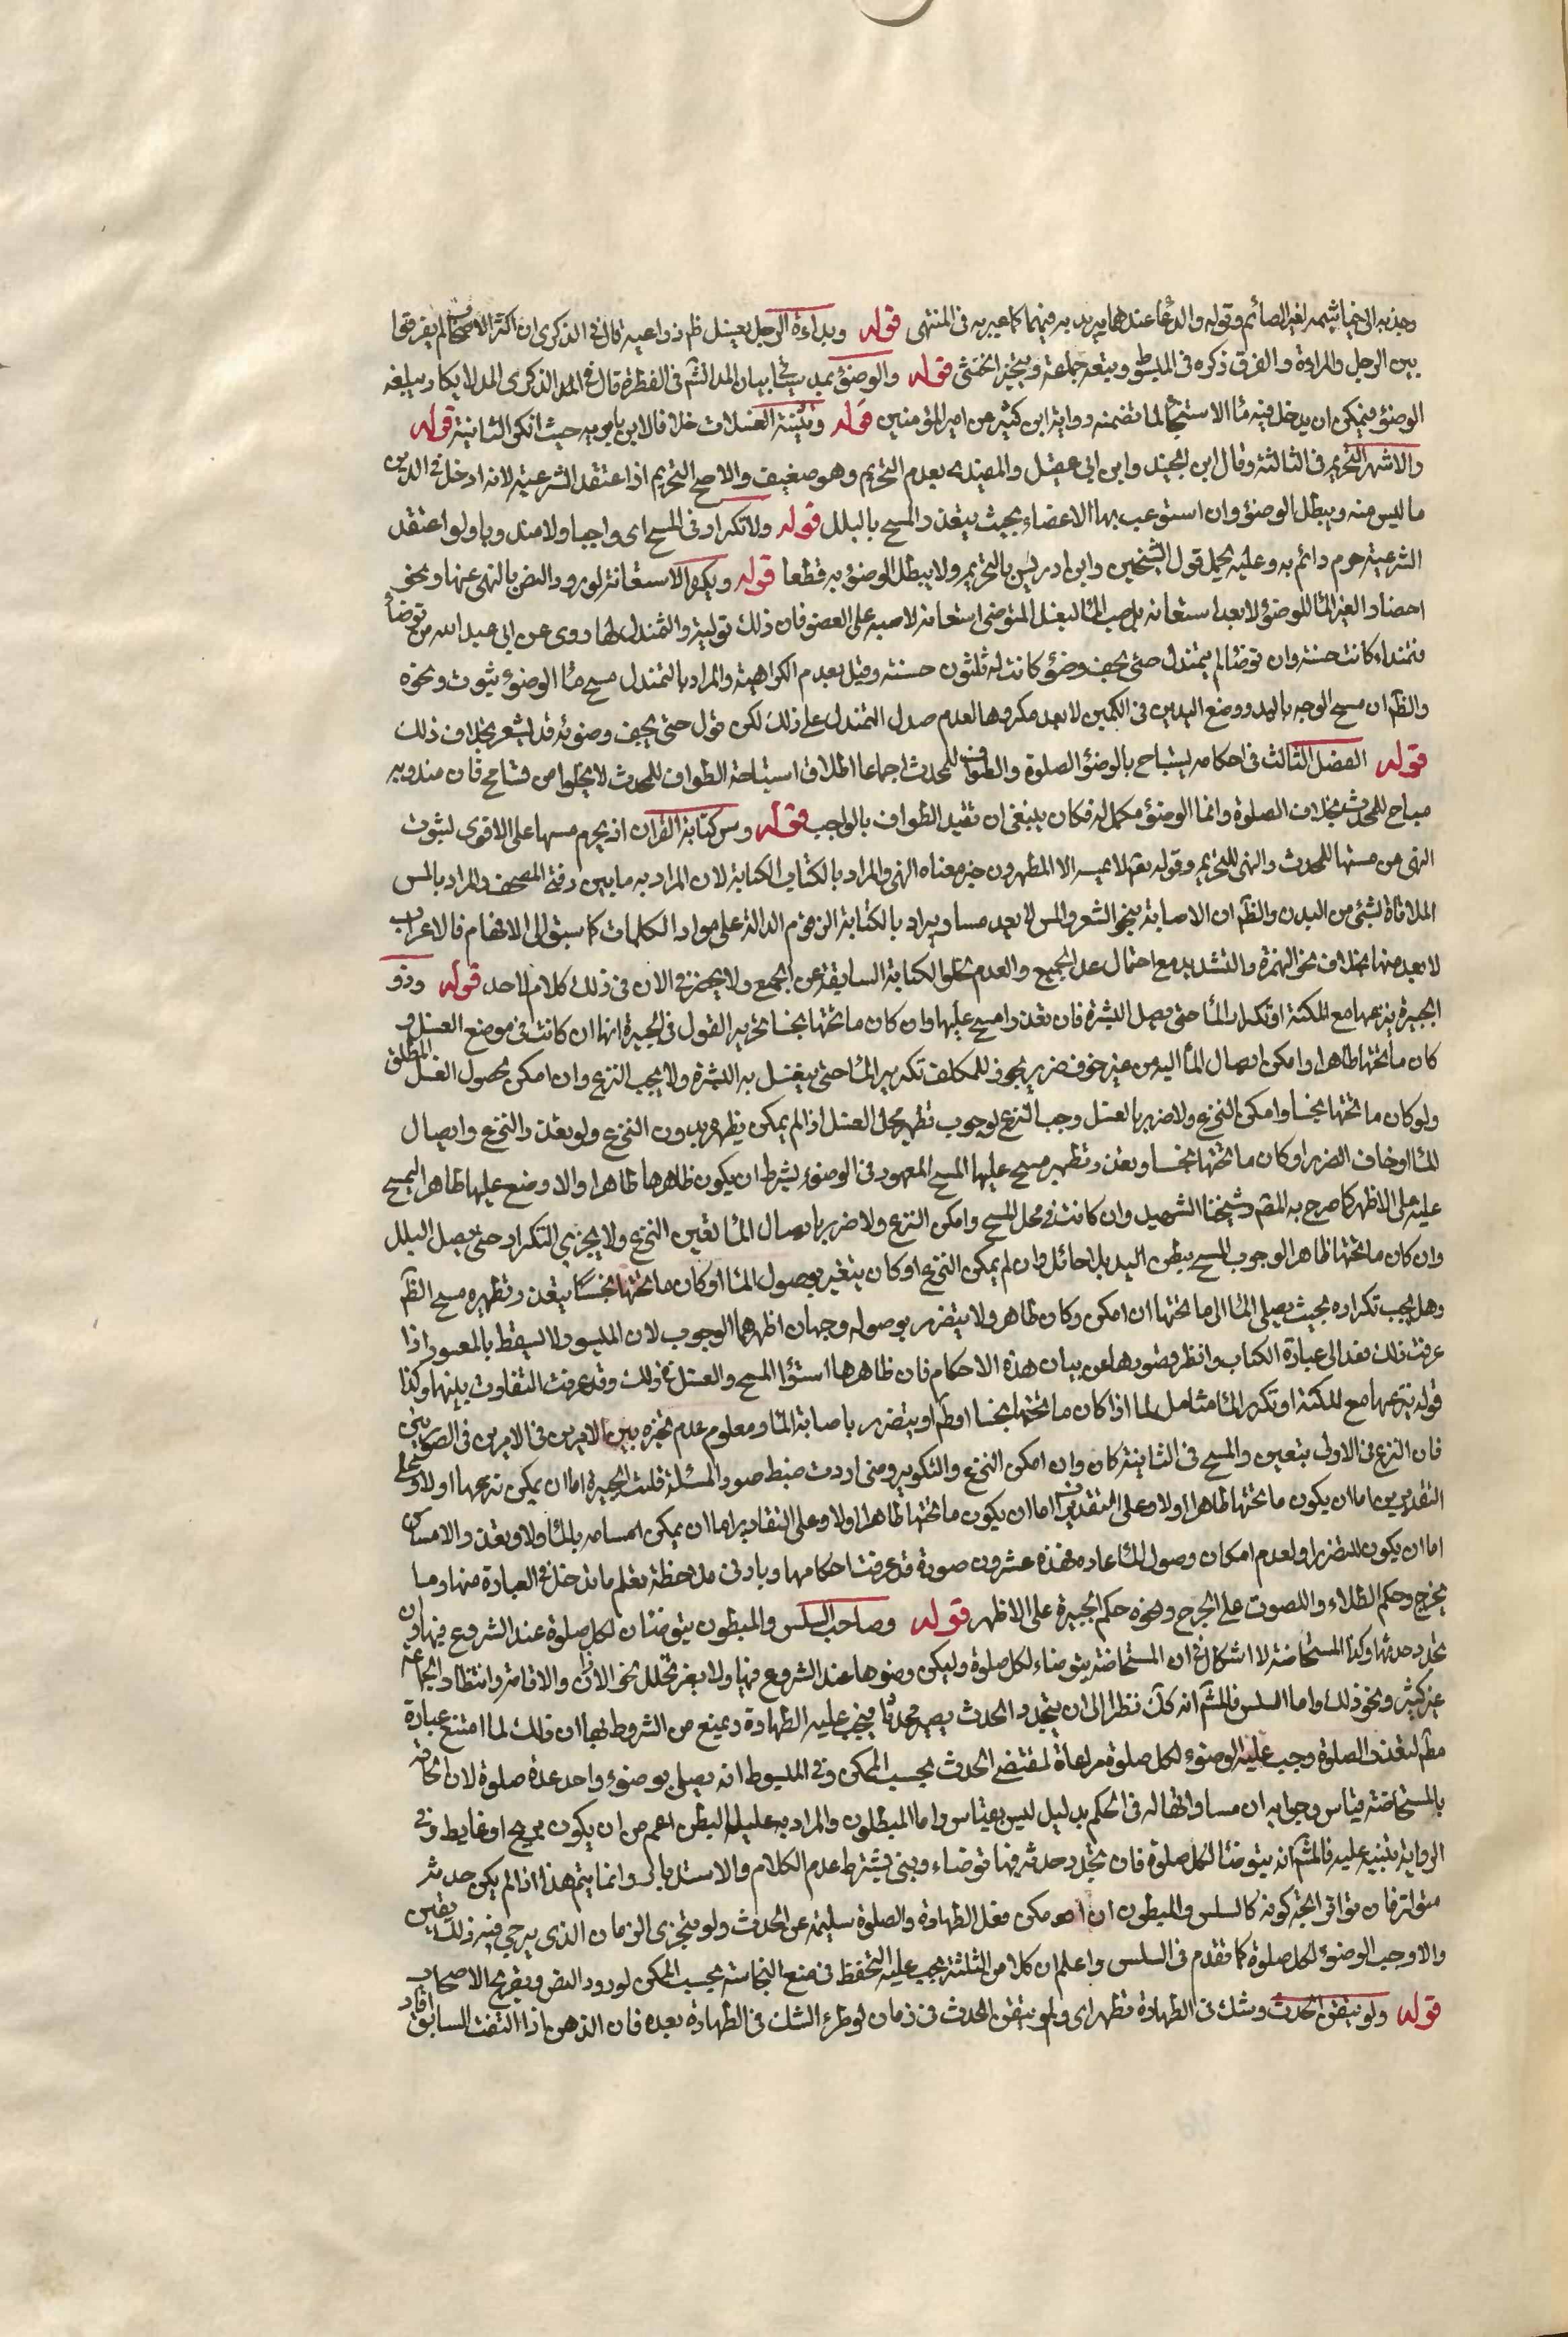 وجذبه الى خياشيمه لغير الصائم وقوله والدعا عندهما يريد به فيهما كما عبر به فى المنتهى قوله وبداءة الرجل بغسل ظهر ذراعيه قال فى الذكرى ان اكثر الاصحاب لم يفرقوا
بين الرجل والمراءة والفرق ذكره فى المبسوط وتبعه جماعة ويتخير الخنثى قوله والوضوء بمد سيأتي بيان المد الشم فى الفطرة قال فى الذكرى المد لا يكاد يبلغه
الوضوء فيمكن ان يدخل فيه ماء الاستنجا لما تضمنه رواية ابن كثير عن امير المؤمنين قوله وتثنية الغسلات خلافا لابن بابويه حيث انكر الثانية قوله
والاشهر التحريم فى الثالثة وقال ابن الجنيد وابن ابى عقيل والمفيد بعدم التحريم وهو ضعيف والاصح التحريم اذا اعتقد الشرعية لانه ادخل فى الدين
ما ليس منه ويبطل الوضوء وان استوعب بها الاعضاء بحيث يتعذر المسح بالبلل قوله ولا تكرار فى المسح اى واجبا ولا مندوبا ولو اعتقد
الشرعية حرم واثم به وعليه يحمل قول الشيخين وابن ادريس بالتحريم ولا يبطل الوضوء به قطعا قوله ويكره الاستعانة لورود النص بالنهى عنها ونحو
احضار الغير الماء للوضوء لا يعد استعانه بل صب الماء ليغسل المتوضى استعانة لا صبه على العضو فان ذلك تولية والتمندل لما روى عن ابى عبد الله من توضأ
فتمندل كانت حسنة وان توضا ولم يتمندل حتى يجف وضؤه كانت له ثلثون حسنة وقيل بعدم الكراهية والمراد بالتمندل مسح ماء الوضوء بثوب ونحوه
والظم ان مسح الوجه باليد ووضع اليدين فى الكمين لا يعد مكروها لعدم صدق التمندل على ذلك لكن قوله حتى يجف وضوئه قد يشعر بخلاف ذلك
قوله الفصل الثالث فى احكامه يستباح بالوضوء الصلوة والطواف للمحدث اجماعا اطلاق استباحة الطواف للمحدث لا يخلوا من تسامح فان مندوبه
مباح للمحدث بخلاف الصلوة وانما الوضوء مكمل له فكان ينبغى ان تقيد الطواف بالواجب قوله ومس كتابة القران اذ يحرم مسها على الاقوى لثبوت
النهى عن مسها للمحدث والنهى للتحريم وقوله تعم لا يمسه الا المطهرون خبر معناه النهى والمراد بالكتاب الكتابة لان المراد به ما بين دفتى المصحف والمراد بالمس
الملاقاة لشئ من البدن والظم ان الاصابة بنحو الشعر والسن لا يعد مسا ويراد بالكتابة الرقوم الدالة على مواد الكلمات كما سبق الى الافهام فالاعراب
لا يعد منها بخلاف نحو الهمزة والتشديد مع احتمال عد الجميع والعدم لخلو الكتابة السابقة عن الجمع ولا يحضرنى الان فى ذلك كلام لاحد قوله وذو
الجبيرة ينزعها مع المكنة او تكرار الماء حتى يصل البشرة فان تعذرا مسح عليها وان كان ما تحتها نجسا تحرير القول فى الجبيرة انها ان كانت فى موضع الغسل و
كان ما تحتها طاهرا وامكن ايصال الماء اليه من غير خوف ضرر يجوز للمكلف تكرير الماء حتى يغسل به البشرة ولا يجب النزع وان امكن لحصول الغسل المطلق
ولو كان ما تحتها نجسا وامكن النزع ولا ضرر بالغسل وجب النزع لوجوب تطهير محل الغسل اذا لم يمكن تطهيره بدون النزع ولو تعذر النزع وايصال
الماء او خاف الضرر او كان ما تحتها نجسا وتعذر تطهيره مسح عليها المسح المعهود فى الوضوء بشرط ان يكون ظاهرها طاهرا والا وضع عليها طاهرا ليمسح
عليه على الاظهر كما صرح به المصم وشيخنا الشهيد وان كانت فى محل المسح وامكن النزع ولا ضرر بايصال الماء تعين النزع ولا يجزى التكرار حتى يصل البلل
وان كان ما تحتها طاهرا لوجوب المسح ببطن اليد بلا حائل وان لم يمكن النزع او كان يتغير بوصول الماء او كان ما تحتها نجسا يتعذر تطهيره مسح الظم
وهل يجب تكراره بحيث يصل الماء الى ما تحتها ان امكن وكان طاهر ولا يتضرر بوصوله وجهان اظهرهما الوجوب لان الميسور لا يسقط بالمعسور اذا
عرفت ذلك فعد الى عبارة الكتاب وانظر قصورها عن بيان هذه الاحكام فان ظاهرها استواء المسح والغسل فى ذلك وقد عرفت التفاوت بينهما وكذا
قوله ينزعها مع المكنة او تكرر الماء شامل لما اذا كان ما تحتها نجسا او طم او يتضرر باصابة الماء ومعلوم عدم تخيره بين الامرين فى الامرين فى الصورتين
فان النزع فى الاولى يتعين والمسح فى الثانية كان وان امكن النزع والتكرير ومتى اردت ضبط صور المسئلة قلت الجبيرة اما ان يمكن نزعها اولا وعلى
التقديرين اما ان يكون ما تحتها طاهرا اولا وعلى التقديرين اما ان يكون ما تحتها طاهرا اولا وعلى التقادير اما ان يمكن امساسه بالماء اولا وتعذر الامساس
اما ان يكون للتضرر او لعدم امكان وصول الماء عاده فهذه عشرون صورة قد عرفت احكامها وبادنى ملاحظة تعلم ما يدخل فى العبارة منها وما
يخرج وحكم الطلاء واللصوق على الجرح ونحوه حكم الجبيرة على الاظهر قوله وصاحب السلس والمبطون يتوضئان لكل صلوة عند الشروع فيها وان
تجدد حدثهما وكذا المستحاضة لا اشكال فى ان المستحاضة يتوضاء لكل صلوة وليكن وضوها عند الشروع فيها ولا يضر تخلل نحو الاذان والاقامة وانتظار الجماعة
غير كثير ونحو ذلك واما السلس فالمشم انه كك نظرا الى ان يتجدد الحدث يصير محدثا فيجب عليه الطهارة ويمنع من المشروط بها الا ان ذلك لما امتنع عبارة
مطم لتعذر الصلوة وجب عليه الوضوء لكل صلوة مراعاة لمقتضى الحدث بحسب الممكن وفى المبسوط انه يصلى بوضوء واحد عدة صلوة لان الحاقه
بالمستحاضة قياس وجوابه ان مساواتها له فى الحكم بدليل ليس بقياس واما المبطون والمراد به عليل البطن اعم من ان يكون بريح او غايط وفى
الرواية تنبيه عليه فالمشم انه يتوضئا لكل صلوة فان تجدد حدثه فيها توضاء وبنى بشرط عدم الكلام والاستدبار وانما يتم هذا اذا لم يكن حدثه
متواترا فان تواتر اتجه كونه كالسلس والمبطون ان امكن فعل الطهارة والصلوة سليمة عن الحدث ولو بتحرى الزمان الذى يرجى فيه ذلك يتعين
والا وجب الوضوء لكل صلوة كما تقدم فى السلس واعلم ان كلا من الثلثة يجب عليه التحفظ فى منع النجاسة بحسب الممكن لورود النص وتصريح الاصحاب
قوله ولو تيقن الحدث وشك فى الطهارة تطهر اى ولو تيقن الحدث فى زمان لو طرء الشك فى الطهارة بعده فان الذهن اذا التفت السابق افاد